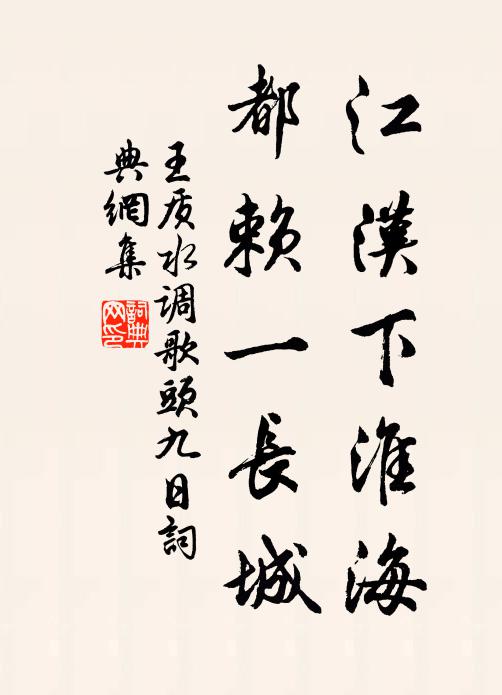 江漢下淮海
都賴一長城
王质水调歌頭九日詞
典網集
詞典
网印